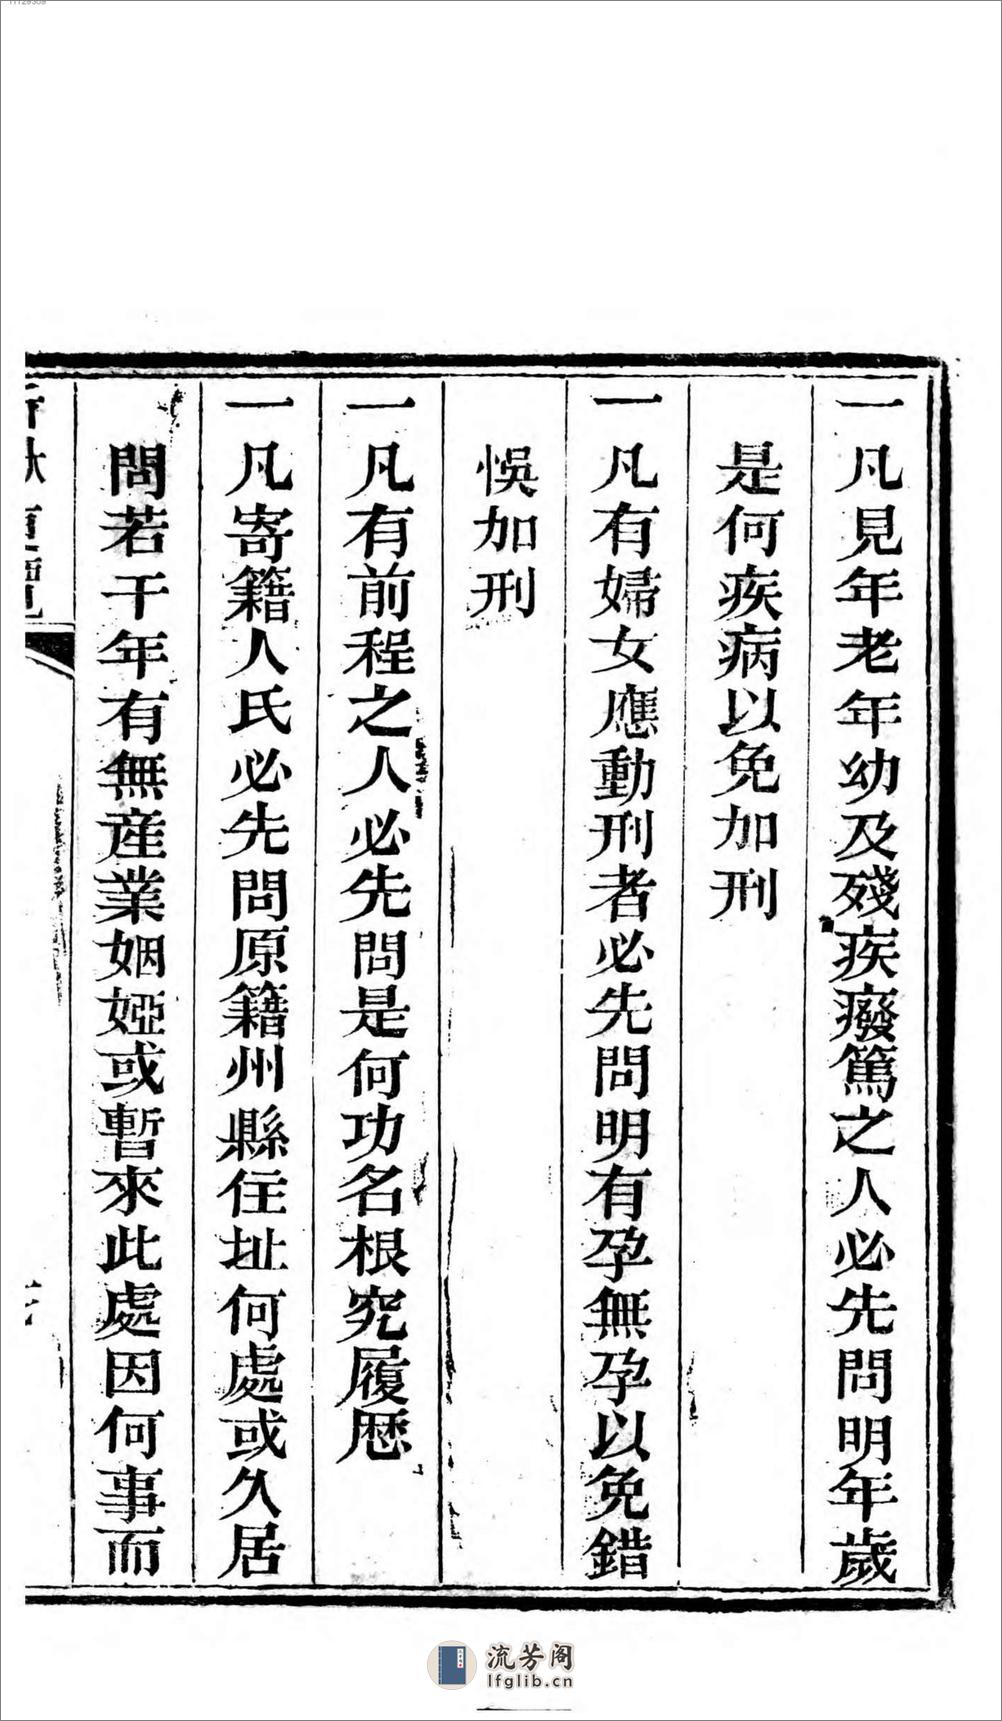 一凡見年老年幼及殘疾癈篤之人必先問明年歲
是何疾病以免加刑
一凡有婦女應動刑者必先問明有孕無孕以免錯
悞加刑
一凡有前程之人必先問是何功名根究履歷
一凡寄籍人氏必先問原籍州縣住址何處或久居
問若干年有無産業姻婭或暫來此處因何事而
流芳阁
lfglib.cn